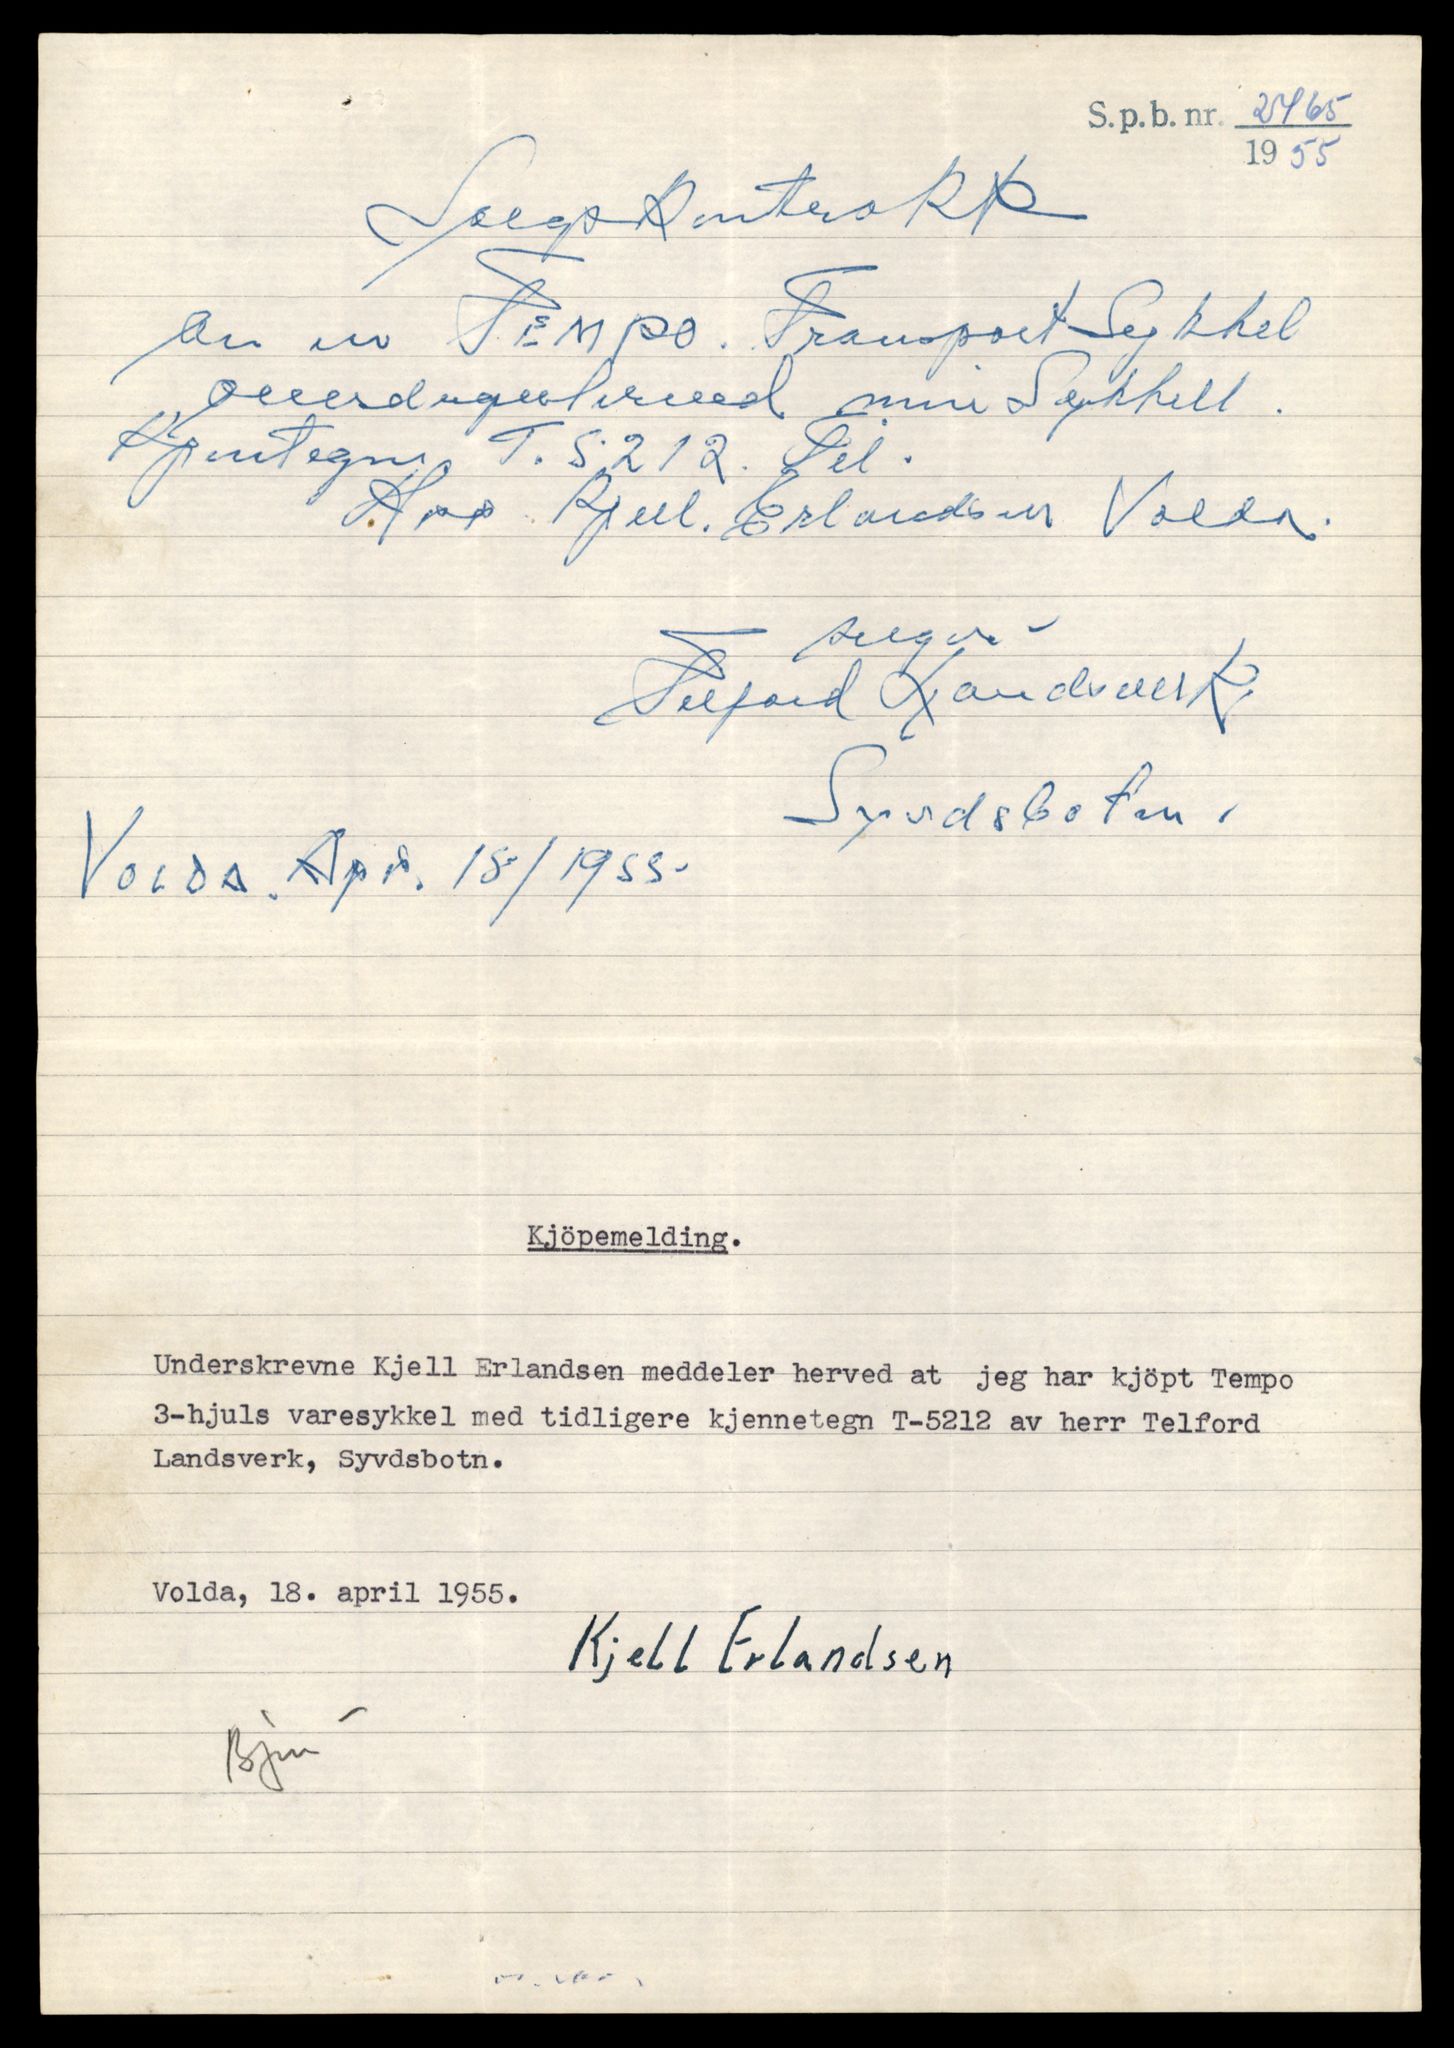 S.p.b. nr. 2465
1955
Salgskontrakt
Tempo. Transport Sykkel
min Sykkell.
Kjentegn T. 5212. Til.
Hrr Kjell. Erlandsen Volda.
selger
Telford Landsverk.
Syvdsbotn.
Volda. Apr. 18/1955.
Kjöpemelding.
Underskrevne Kjell Erlandsen meddeler herved at jeg har kjöpt Tempo
3-hjuls varesykkel med tidligere kjennetegn T-5212 av herr Telford
Landsverk, Syvdsbotn.
Volda, 18. april 1955.
Kjell Erlandsen